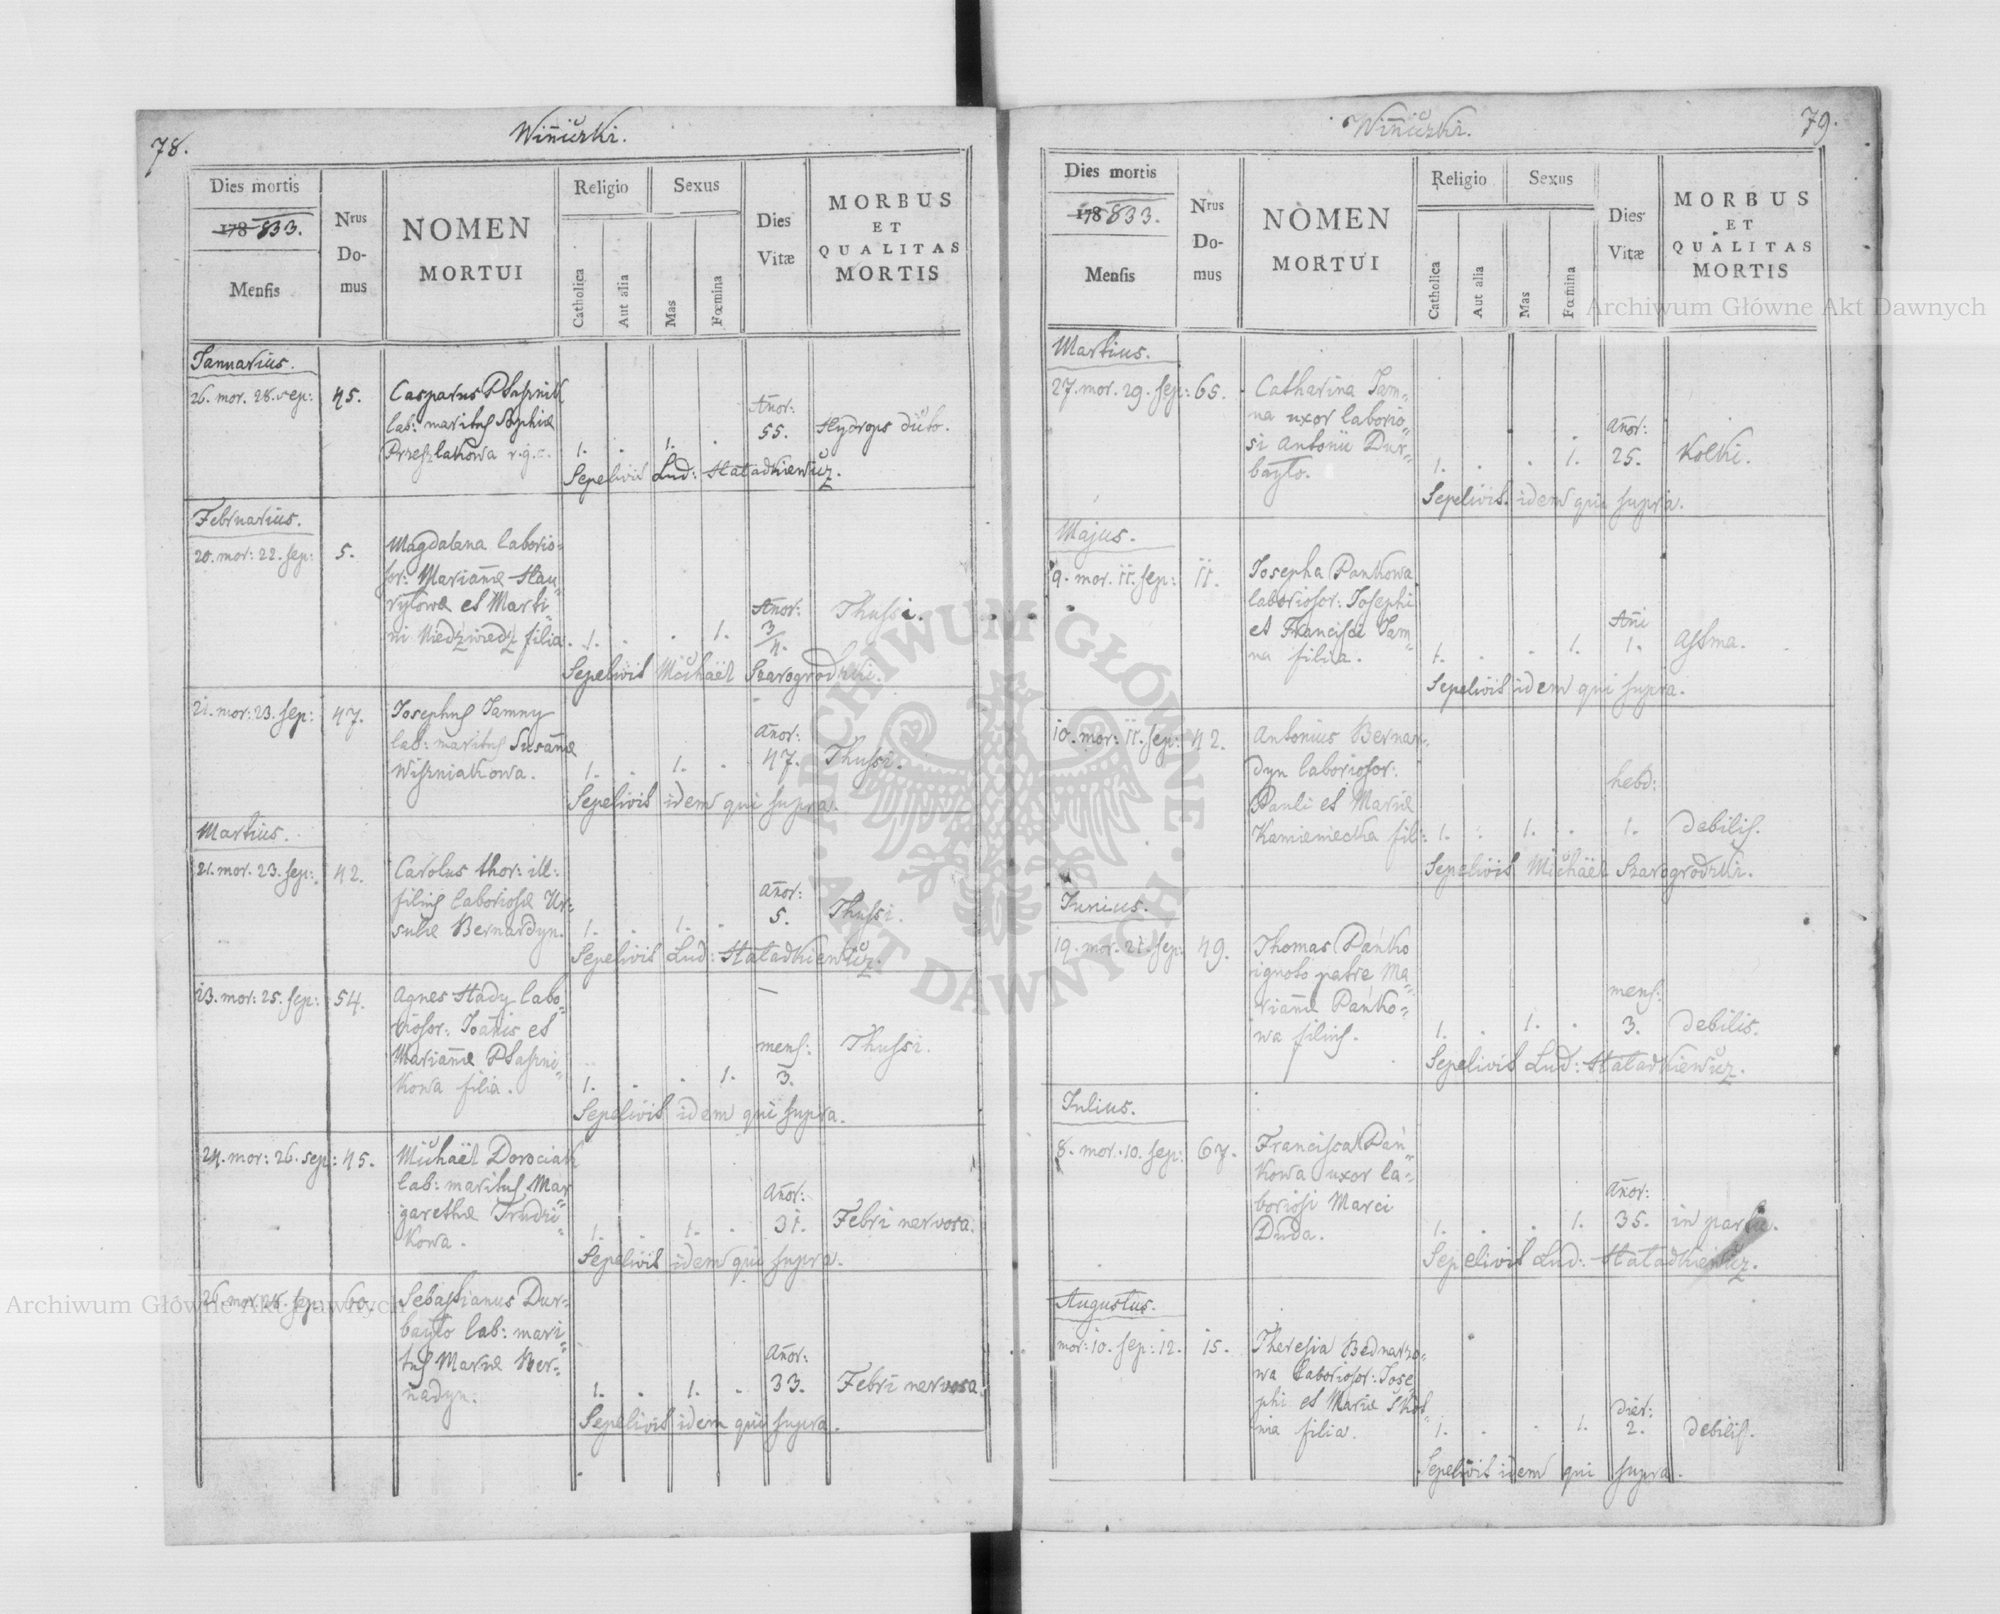 78.
Winiczki.
Dies mortis
178 833.
Mensis
Nrus
Do-
mus
NOMEN
MORTUI
Religio
Catholica
Aut alia
Sexus
Mas
Fœmina
Dies
Vitæ
MORBUS
ET
QUALITAS
MORTIS
Januarius.
26. mor. 28. sep: 45.
Casparus Ptasznik
lab: maritus Sophiæ
Przeszlakowa r. g. c.
1. . 1. .
Añor:
55.
Hydrops
Sepelivit Lud: Hatadkiewicz.
Februarius.
20. mor: 22. sep: 5.
Magdalena laborio-
sor: Mariañæ Hau-
rylowæ et Marti-
ni Niedzwiedz filia.
1. . . 1.
Añor:
3/4.
Thussi.
Sepelivit Michaël Szarogrodzki.
21. mor: 23. sep: 47.
Josephus Jamny
lab: maritus Susañæ
Wiszniakowa.
1. . 1. .
añor:
47.
Thussi.
Sepelivit idem qui supra.
Martius.
21. mor. 23. sep: 42.
Carolus thor: ill:
filius laboriosæ Ur-
sulæ Bernardyn.
1. . 1. .
añor:
5.
Thussi.
Sepelivit Lud: Hatadkiewicz.
23. mor: 25. sep: 54.
Agnes Hady labo-
riosor: Joañis et
Mariañæ Ptaszni-
kowa filia.
1. . . 1.
mens:
3.
Thussi.
Sepelivit idem qui supra.
24. mor: 26. sep: 45.
Michaël Dorociak
lab: maritus Mar-
garethæ Trudzi-
kowa.
1. . 1. .
Añor:
31.
Febri nervosa.
Sepelivit idem qui supra.
26. mor. 28. sep. 60.
Sebastianus Dur-
bayło lab: mari-
tus Mariæ Ber-
nadyn.
1. . 1. .
Añor:
33.
Febri nervosa.
Sepelivit idem qui supra.
79.
Winiczki.
Dies mortis
178 833.
Mensis
Nrus
Do-
mus
NOMEN
MORTUI
Religio
Catholica
Aut alia
Sexus
Mas
Fœmina
Dies
Vitæ
MORBUS
ET
QUALITAS
MORTIS
Martius.
27. mor. 29. sep: 65.
Catharina Jam-
na uxor laborio-
si Antonii Dur-
bayło.
1. . . 1.
añor:
25.
Kolki.
Sepelivit idem qui supra.
Majus.
9. mor. 11. sep: 11.
Josepha Pankowa
laboriosor: Josephi
et Franciscæ Jam-
na filia.
1. . . 1.
Añi
1.
Astma.
Sepelivit idem qui supra.
10. mor: 11. sep: 42.
Antonius Bernar-
dyn laboriosor:
Pauli et Mariæ
Kamieniecka fil:
1. . 1. .
hebd:
1.
debilis.
Sepelivit Michaël Szarogrodzki.
Junius.
19. mor. 21. sep: 49.
Thomas Pańko
ignoto patre Ma-
riañæ Pańko-
wa filius.
1. . 1. .
mens:
3.
debilis.
Sepelivit Lud: Hatadkiewicz.
Julius.
8. mor. 10. sep: 67.
Francisca Pań-
kowa uxor la-
boriosi Marci
Duda.
1. . . 1.
Añor:
35.
in partu.
Sepelivit Lud: Hatadkiewicz.
Augustus.
mor: 10. sep: 12. 15.
Theresia Bednarzo-
wa laboriosor: Jose-
phi et Mariæ
filia.
1. . . 1.
dier:
2.
debilis.
Sepelivit idem qui supra.
Archiwum Główne Akt Dawnych
Archiwum Główne Akt Dawnych
ARCHIWUM GŁÓWNE
AKT DAWNYCH